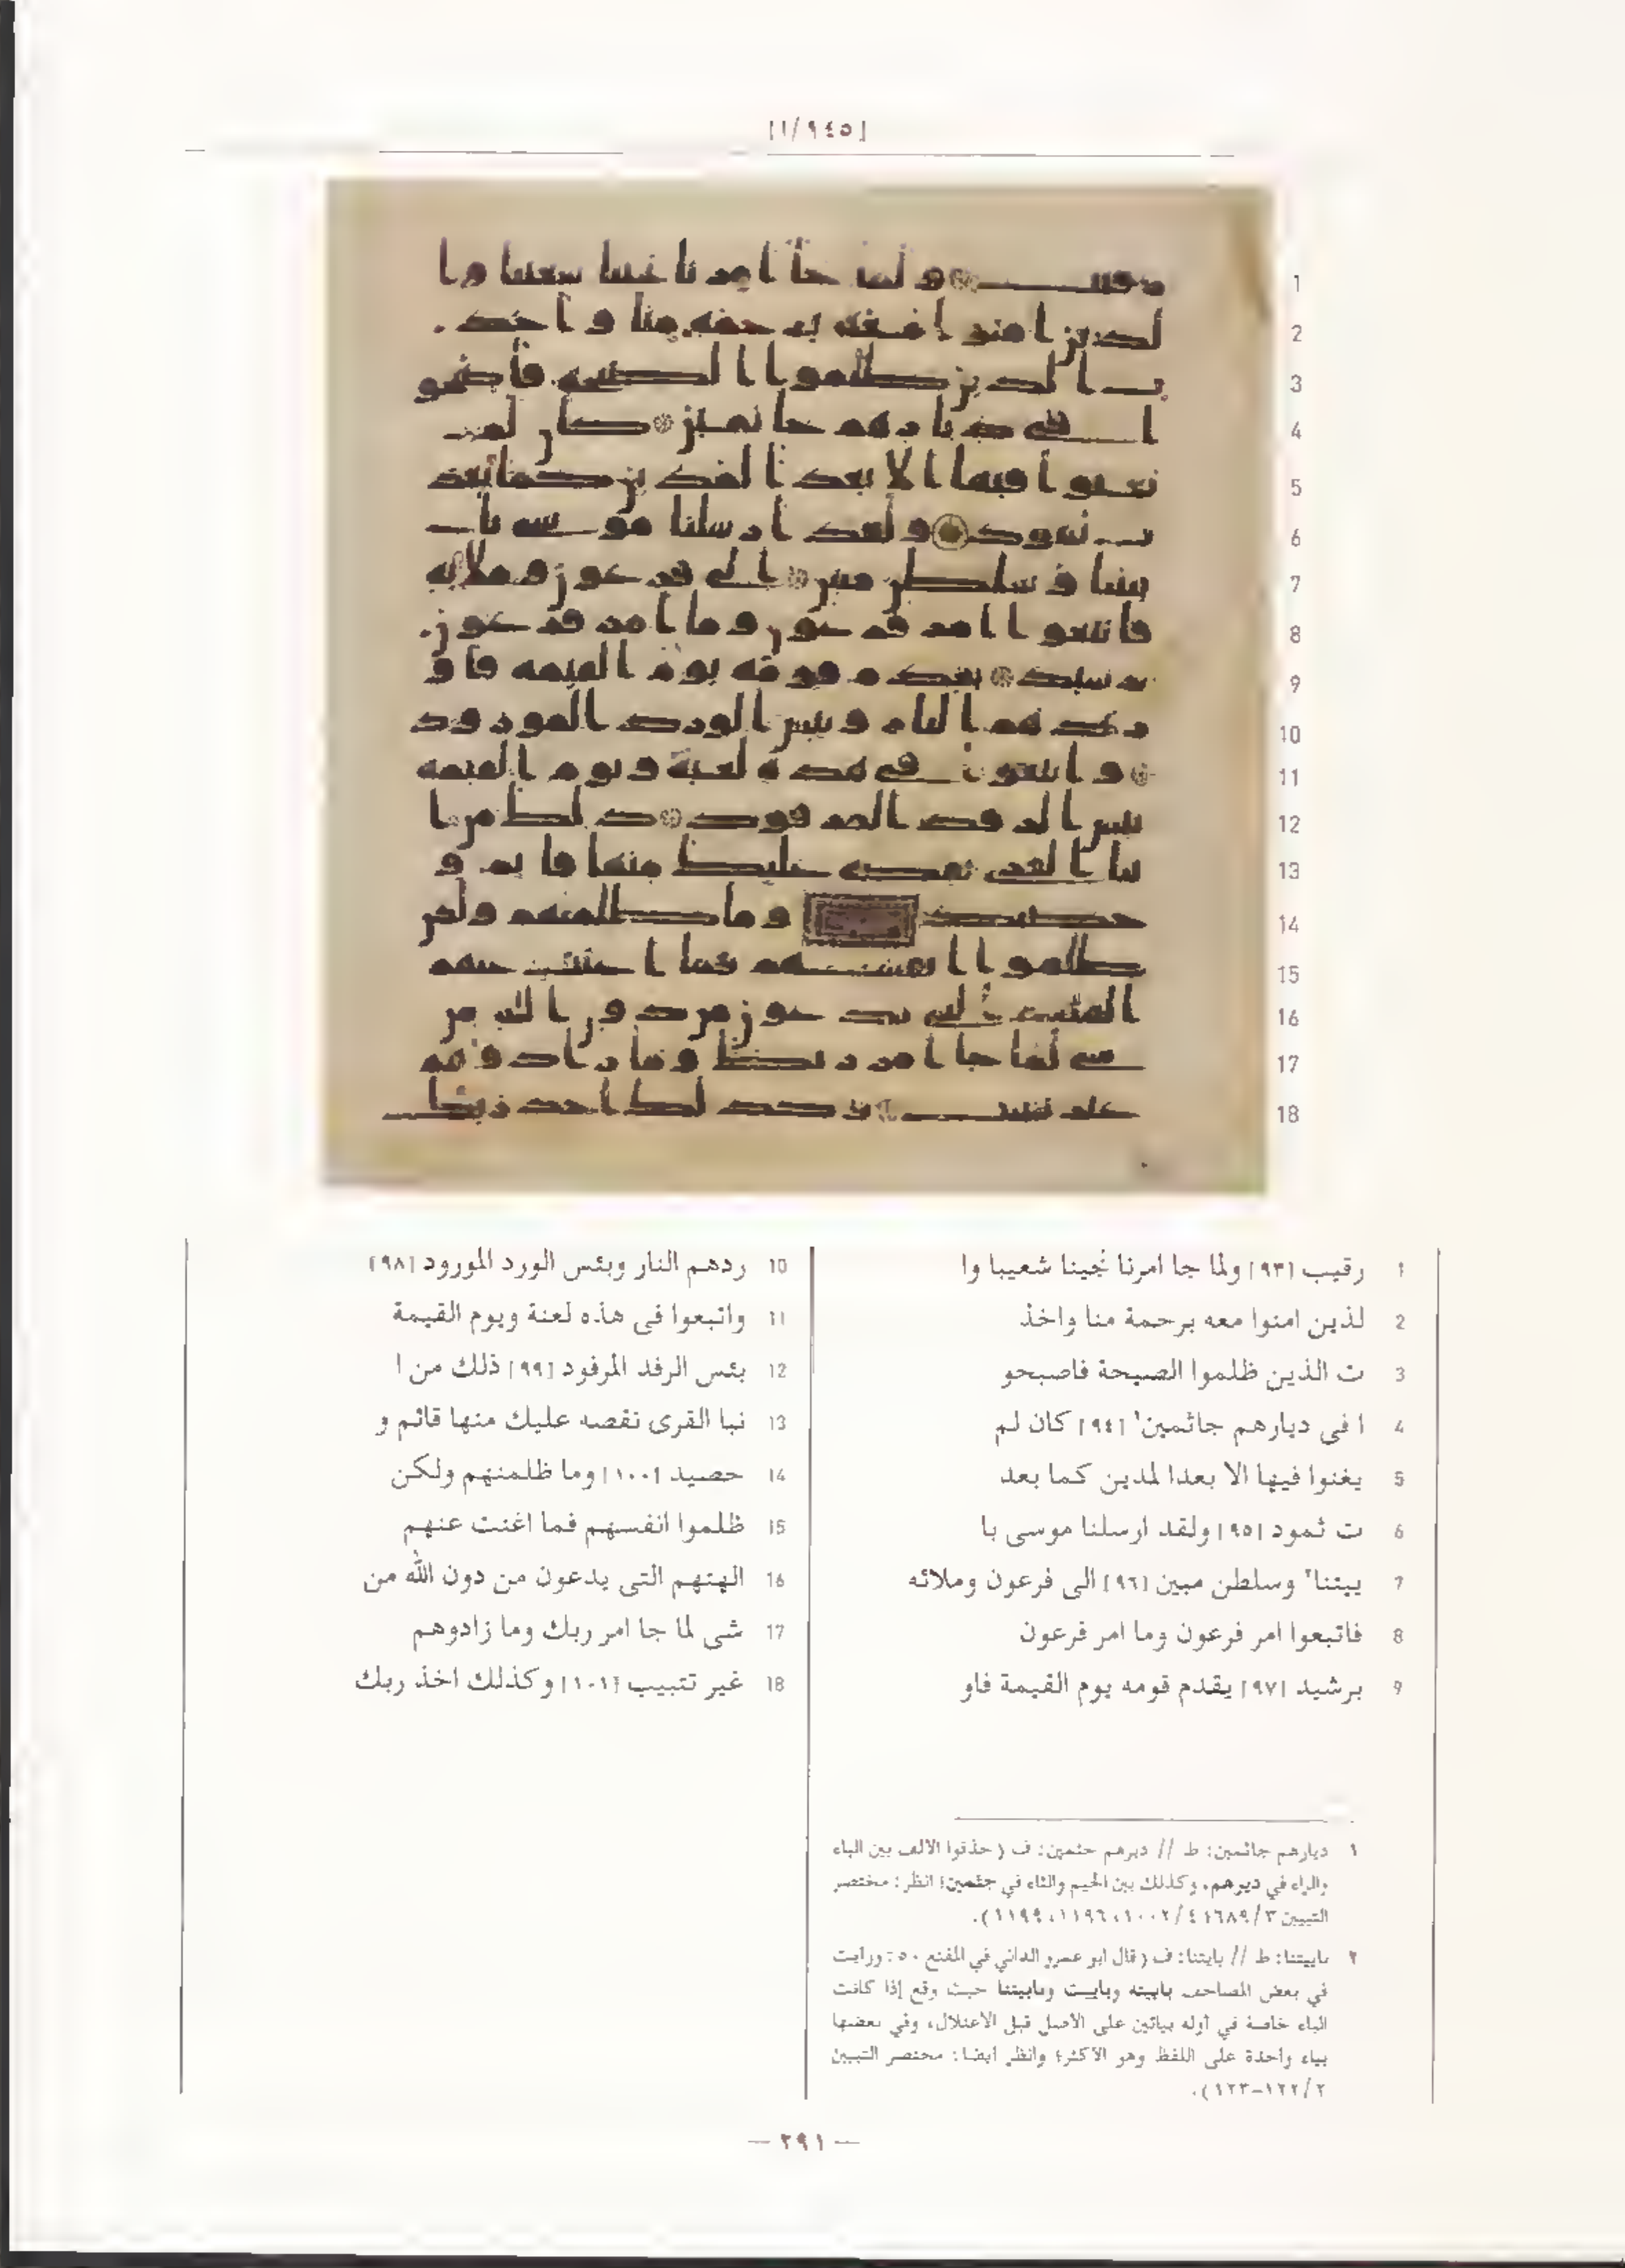 [١/٩٤٥]
1
2
3
4
5
6
7
8
9
10
11
12
13
14
15
16
17
18
1 رقيب [٩٣] ولما جا امرنا نجينا شعيبا وا
2 لذين امنوا معه برحمة منا واخذ
3 ت الذين ظلموا الصيحة فاصبحو
4 ا فى ديارهم جاثمين١ [٩٤] كان لم
5 يغنوا فيها الا بعدا لمدين كما بعد
6 ت ثمود [٩٥] ولقد ارسلنا موسى با
7 ييتنا٢ وسلطن مبين [٩٦] الى فرعون وملائه
8 فاتبعوا امر فرعون وما امر فرعون
9 برشيد [٩٧] يقدم قومه يوم القيمة فاو
10 ردهم النار وبئس الورد المورود [٩٨]
11 واتبعوا فى هذه لعنة ويوم القيمة
12 بئس الرفد المرفود [٩٩] ذلك من ا
13 نبا القرى نقصه عليك منها قائم و
14 حصيد [١٠٠] وما ظلمنهم ولكن
15 ظلموا انفسهم فما اغنت عنهم
16 الهتهم التى يدعون من دون الله من
17 شى لما جا امر ربك وما زادوهم
18 غير تتبيب [١٠١] وكذلك اخذ ربك
١ ديارهم جاثمين: ط // ديرهم جثمين: ف (حذفوا الألف بين الياء
والراء في ديرهم، وكذلك بين الجيم والثاء في جثمين؛ انظر: مختصر
التبيين
٢ باييتنا: ط // بايتنا: ف (قال ابو عمرو الداني في المقنع ٥٠: ورأيت
في بعض المصاحف باييته وباييت وباييتنا حيث وقع إذا كانت
الباء خاصة في أوله بيائين على الأصل قبل الاعتلال، وفي بعضها
بياء واحدة على اللفظ وهو الأكثر؛ وانظر أيضا: مختصر التبيين
٢/١٢٢-١٢٣).
— ٢٩١ —